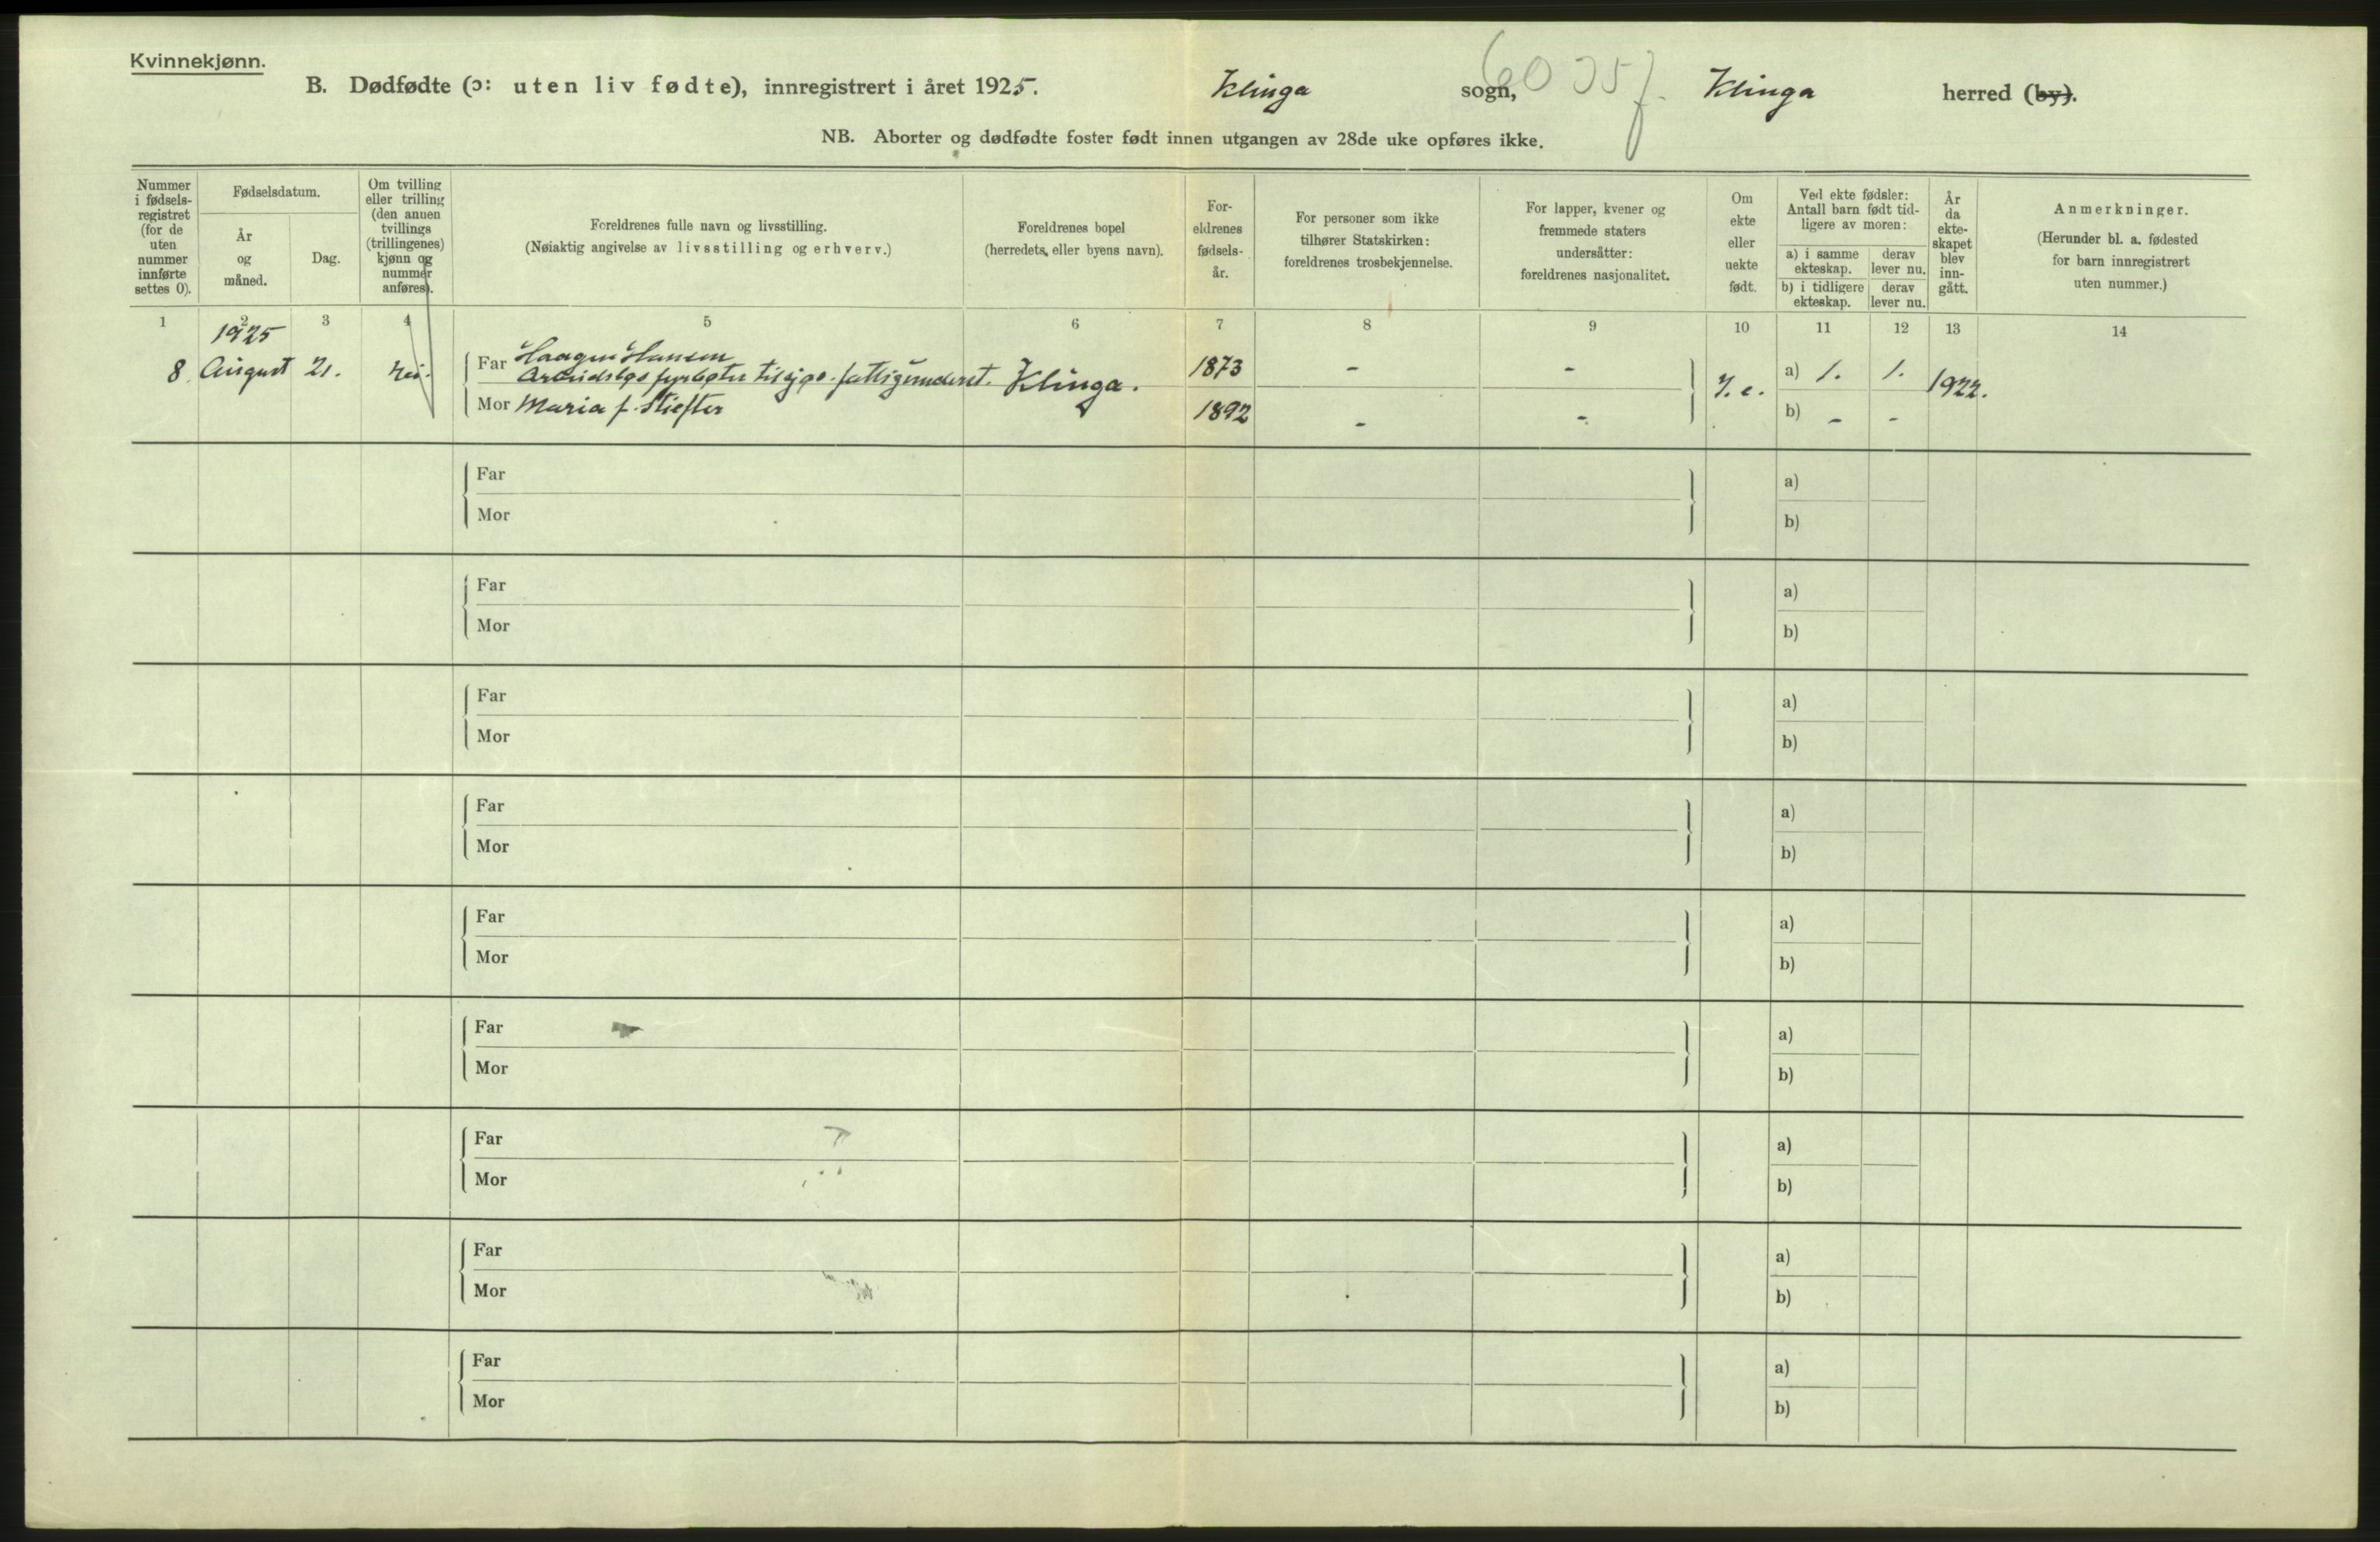 Kvinnekjønn.
B. Dødfødte (ɔ: uten liv fødte), innregistrert i året 1925. Klinga sogn, Klinga herred (by).
NB. Aborter og dødfødte foster født innen utgangen av 28de uke opføres ikke.
Nummer
i fødsels-
registret
(for de
uten
nummer
innførte
settes 0).
Fødselsdatum.
År
og
måned.
Dag.
Om tvilling
eller trilling
(den annen
tvillings
(trillingenes)
kjønn og
nummer
anføres).
Foreldrenes fulle navn og livsstilling.
(Nøiaktig angivelse av livsstilling og erhverv.)
Foreldrenes bopel
(herredets, eller byens navn).
For-
eldrenes
fødsels-
år.
For personer som ikke
tilhører Statskirken:
foreldrenes trosbekjennelse.
For lapper, kvener og
fremmede staters
undersåtter:
foreldrenes nasjonalitet.
Om
ekte
eller
uekte
født.
Ved ekte fødsler:
Antall barn født tid-
ligere av moren:
a) i samme
ekteskap.
derav
lever nu.
b) i tidligere
ekteskap.
derav
lever nu.
År
da
ekte-
skapet
blev
inn-
gått.
Anmerkninger.
(Herunder bl. a. fødested
for barn innregistrert
uten nummer.)
1 2 3 4 5 6 7 8 9 10 11 12 13 14
1925
8. August 21. Nei. Far Haagen Hansen Klinga. 1873 - - a) 1. 1. 1922.
Mor Maria f. 1892 - - b) - -
Far a)
Mor b)
Far a)
Mor b)
Far a)
Mor b)
Far a)
Mor b)
Far a)
Mor b)
Far a)
Mor b)
Far a)
Mor b)
Far a)
Mor b)
Far a)
Mor b)